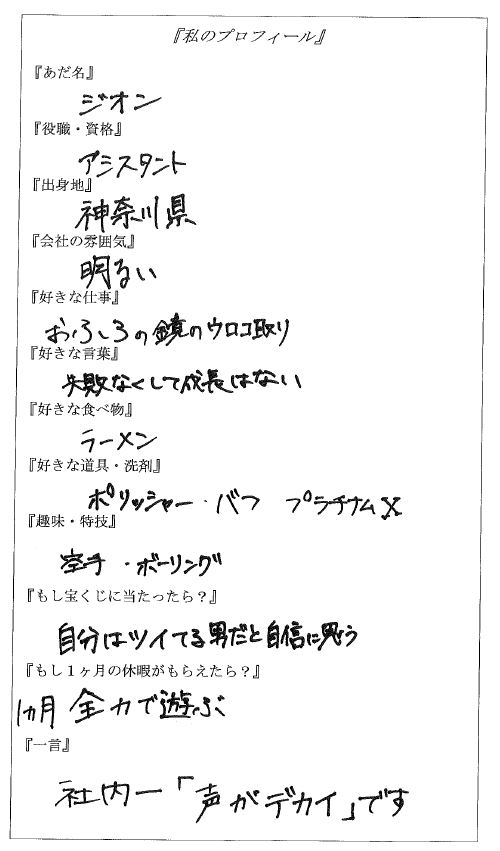 『私のプロフィール』
『あだ名』
ジオン
『役職・資格』
アシスタント
『出身地』
神奈川県
『会社の雰囲気』
明るい
『好きな仕事』
おふろの鏡のウロコ取り
『好きな言葉』
失敗なくして成長はない
『好きな食べ物』
ラーメン
『好きな道具・洗剤』
ポリッシャー・バフ プラチナムX
『趣味・特技』
空手・ボーリング
『もし宝くじに当たったら?』
自分はツイてる男だと自信に思う
『もし1ヶ月の休暇がもらえたら?』
1カ月 全力で遊ぶ
『一言』
社内一「声がデカイ」です